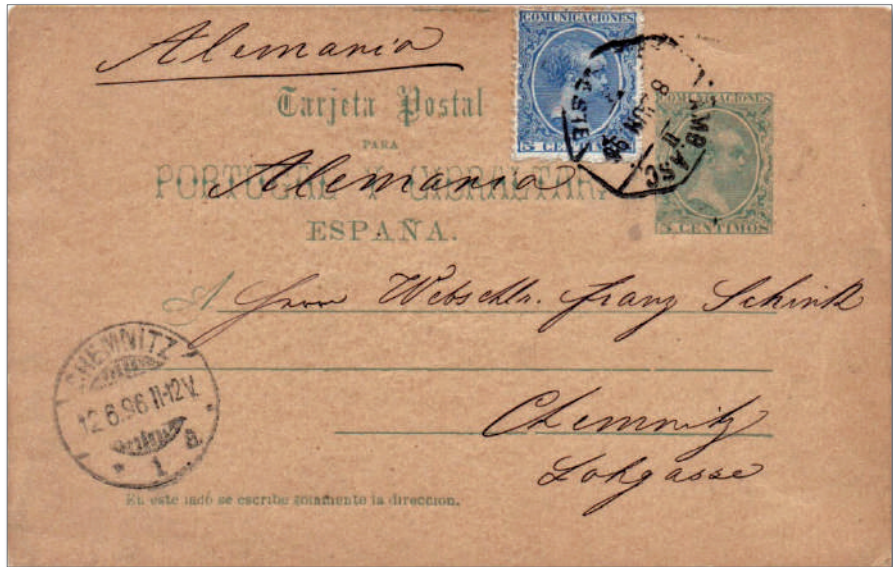 Alemania
COMUNICACIONES
5 CENTIMOS
AMB ASC
8 JUN 96
COMUNICACIONES
5 CENTIMOS
Tarjeta Postal
PARA
PORTUGAL Y GIBRALTAR
Alemania
ESPAÑA.
A Herrn Franz Schink
Chemnitz
Lohgasse
CHEMNITZ
12.6.96 11-12V.
1 a.
En este lado se escribe solamente la direccion.